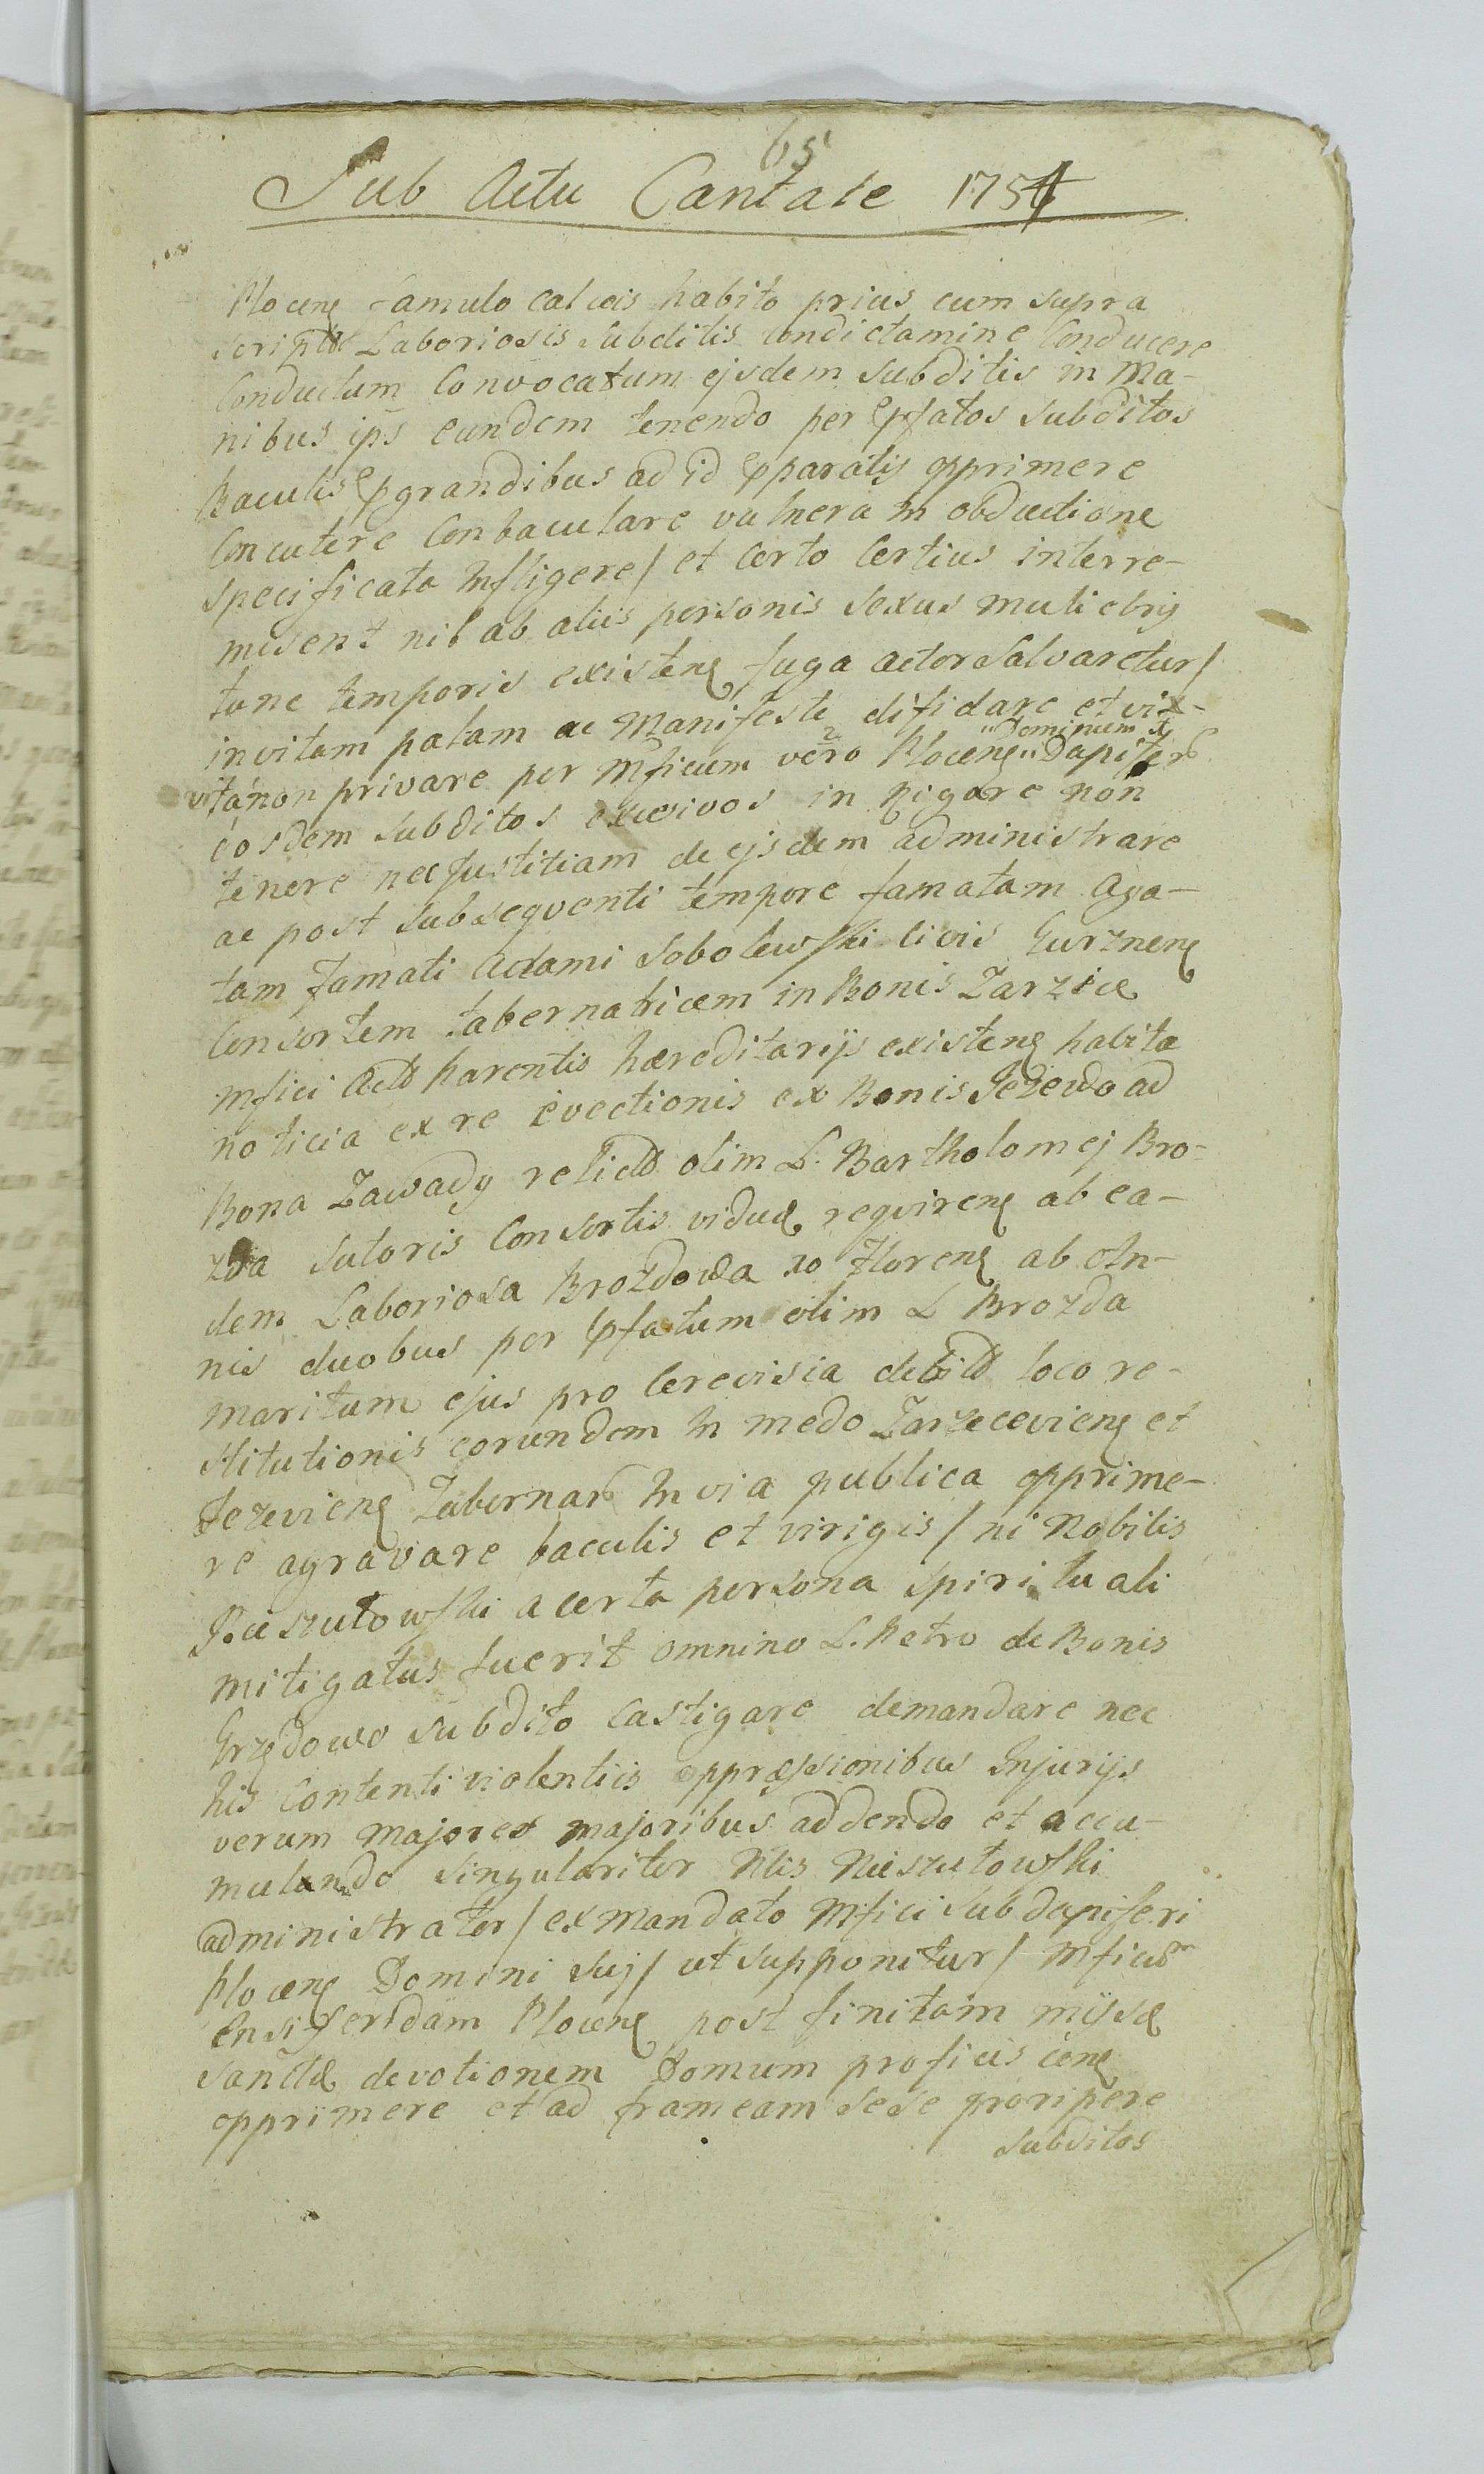 65
Sub Actu Cantate 1754
Plocens famulo calceis habito prius cum supra
script Laboriosis Subditis condictamine Conducere
Conductum Convocatum ejsdem subditis in Ma-
nibus ips eundem tenendo per pfatos subditos
Baculis pgrandibus ad id pparatis opprimere
Concutere Conbaculare vulnera in obductione
specificata Infligere / et certo Certius interre-
misent ni ab aliis personis sexus muliebris
tunc temporis existens fuga actor salvaretur /
invitam palam ac Manifeste difidare et vix-
"Dominum
vita non privare per Mficum vero Plocens " Dapifer
eosdem subditos excessivos in rigore non
tenere nec Justitiam de ejsdem administrare
ac post subsequenti tempore famatam Aga-
tam famati Adami Sobolewski civis Gurznens
Consortem tabernatricem in Bonis Zarzice
Mfici Act Parentis hæreditarijs existens habita
noticia ex re evectionis ex Bonis Jezewo ad
Bona Zawady relict olim L. Bartholomej Bro-
zda sutoris Consortis viduæ requirens ab ea-
dem Laboriosa Brozdowa 10 Florens ab An-
nis duobus per pfatum olim L Brozda
maritum ejus pro Cerevisia debit loco re-
stitutionis eorundem In medo Zarzeceviens et
Jezeviens Tabernar In via publica opprime-
re agravare baculis et virigis / ni Nobilis
Rieszutowski a certa persona spirituali
mitigatus fuerit omnino L. Petro de Bonis
Grzędowo subdito castigare demandare nec
his contenti violentiis oppræssionibus Injurijs
verum majores majoribus addendo et accu-
mulando singulariter Nlis Rieszutowski
administrator / ex mandato Mfici subdapiferi
Plocens Domini suj / ut supponitur / Mficam
Ensiferidam Plocens post finitam missæ
sanctæ devotionem Domum proficiscens
opprimere et ad frameam sese proripere
subditos